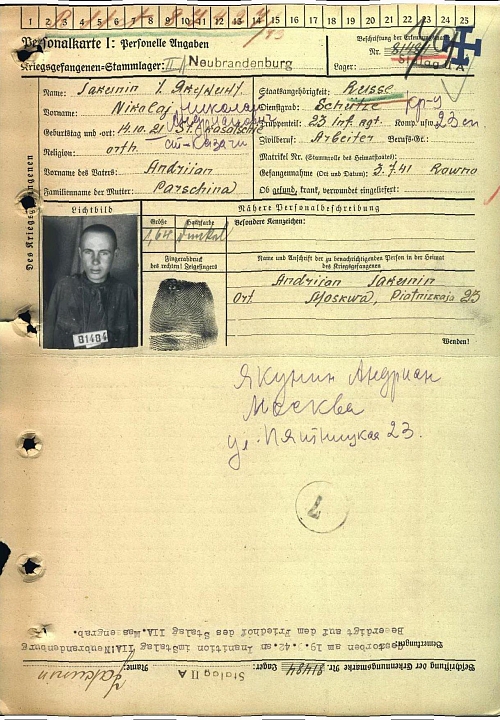 1 2 3 4 5 6 7 8 9 10 11 12 13 14 15 16 17 18 19 20 21 22 23 24 25
Personalkarte I: Personelle Angaben
Kriegsgefangenen-Stammlager: II Neubrandenburg
Beschriftung der Erkennungsmarke
Nr. 81484
Lager: Stalag II A
Des Kriegsgefangenen
Name: Jakunin Якунин
Vorname: Nikolaj Николай
Андрианович
Geburtstag und -ort: 14.10.21
ст. Казачи
Religion: orth.
Vorname des Vaters: Andrijan
Familienname der Mutter: Parschina
Staatsangehörigkeit: Russe
Dienstgrad: Schütze кр-ц
Truppenteil: 23 Inf. Rgt. Komp. usw.:
Zivilberuf: Arbeiter Berufs-Gr.:
Matrikel Nr. (Stammrolle des Heimatstaates):
Gefangennahme (Ort und Datum): 3.7.41 Rowno
Ob gesund, krank, verwundet eingeliefert:
Lichtbild
Nähere Personalbeschreibung
Größe
1,64
Haarfarbe
dunkel
Besondere Kennzeichen:
Fingerabdruck
des rechten! Zeigefingers
Name und Anschrift der zu benachrichtigenden Person in der Heimat
des Kriegsgefangenen
Andrijan Jakunin
Ort Moskwa, Piatnizkaja 23
81484
Wenden!
Якунин Андриан
Москва
ул. Пятницкая 23.
2
Beschriftung der Erkennungsmarke Nr. 81484 Lager: Stalag II A Name: Jakunin
Bemerkungen:
Gestorben am 19.1.42. an Inanition im Stalag IIA. Neubrandenburg
Beerdigt auf dem Friedhof des Stalag IIA. Massengrab.